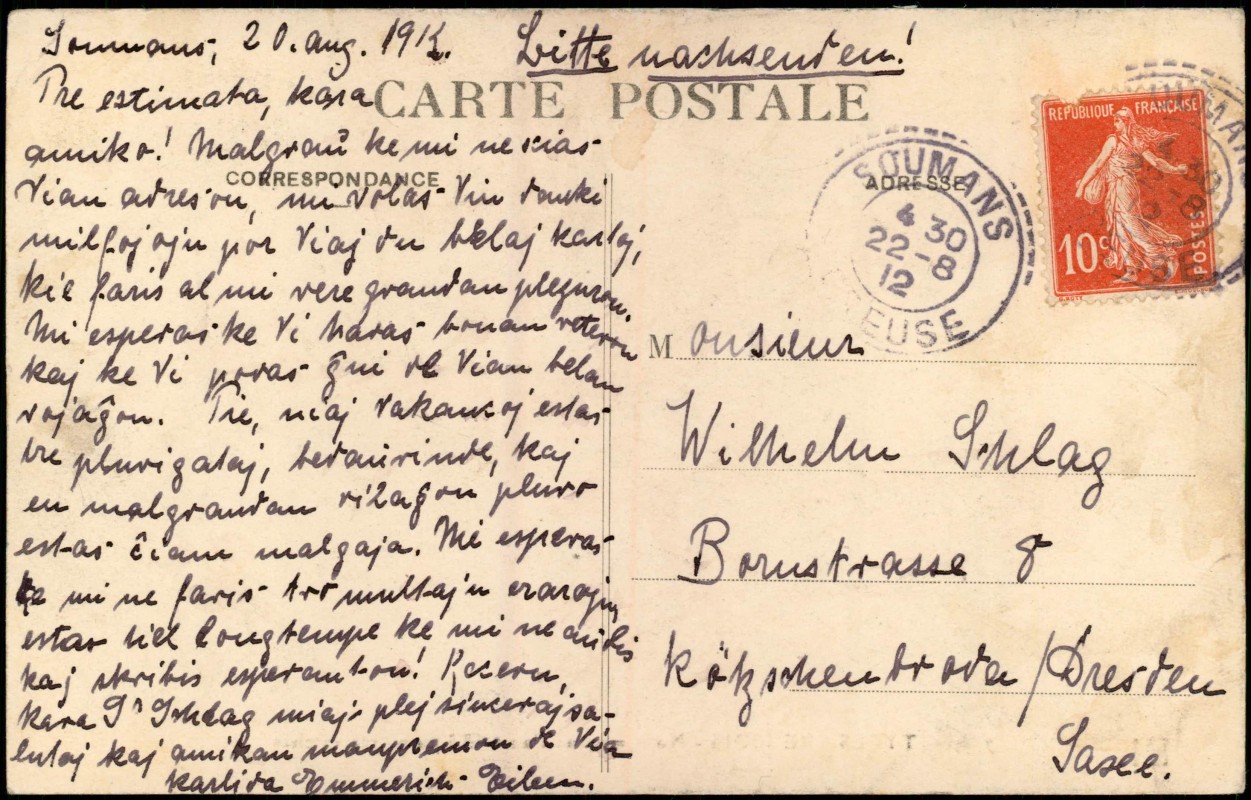 Soumans, 20. aug. 1912. Bitte nachsenden!
CARTE POSTALE
Tre estimata, kara
amiko! Malgraŭ ke mi ne scias
CORRESPONDANCE
Vian adreson, mi volas Vin danki
milfojojn por Viaj du belaj kartoj,
kie faris al mi vere grandan plezuron.
Mi esperas ke Vi havas bonan veteron
kaj ke Vi povas ĝui de Vian belan
vojaĝon. Tie, niaj vakancoj estas
tre pluvigataj, bedaŭrinde, kaj
en malgrandan vilaĝon pluvo
estas ĉiam malgaja. Mi esperas
ke mi ne faris tro multajn erarojn,
estas tiel longtempe ke mi ne aŭdis
kaj skribis esperanton!
kara Sʳ Schlag miajn plej sincerajn sa-
lutoj kaj amikan manpremon de Via
Emmerich
ADRESSE
SOUMANS
4 30
22-8
12
EUSE
REPUBLIQUE FRANÇAISE
10c
POSTES
Monsieur
Wilhelm Schlag
Bornstrasse 8
Kötzschenbroda / Dresden
Saxe.